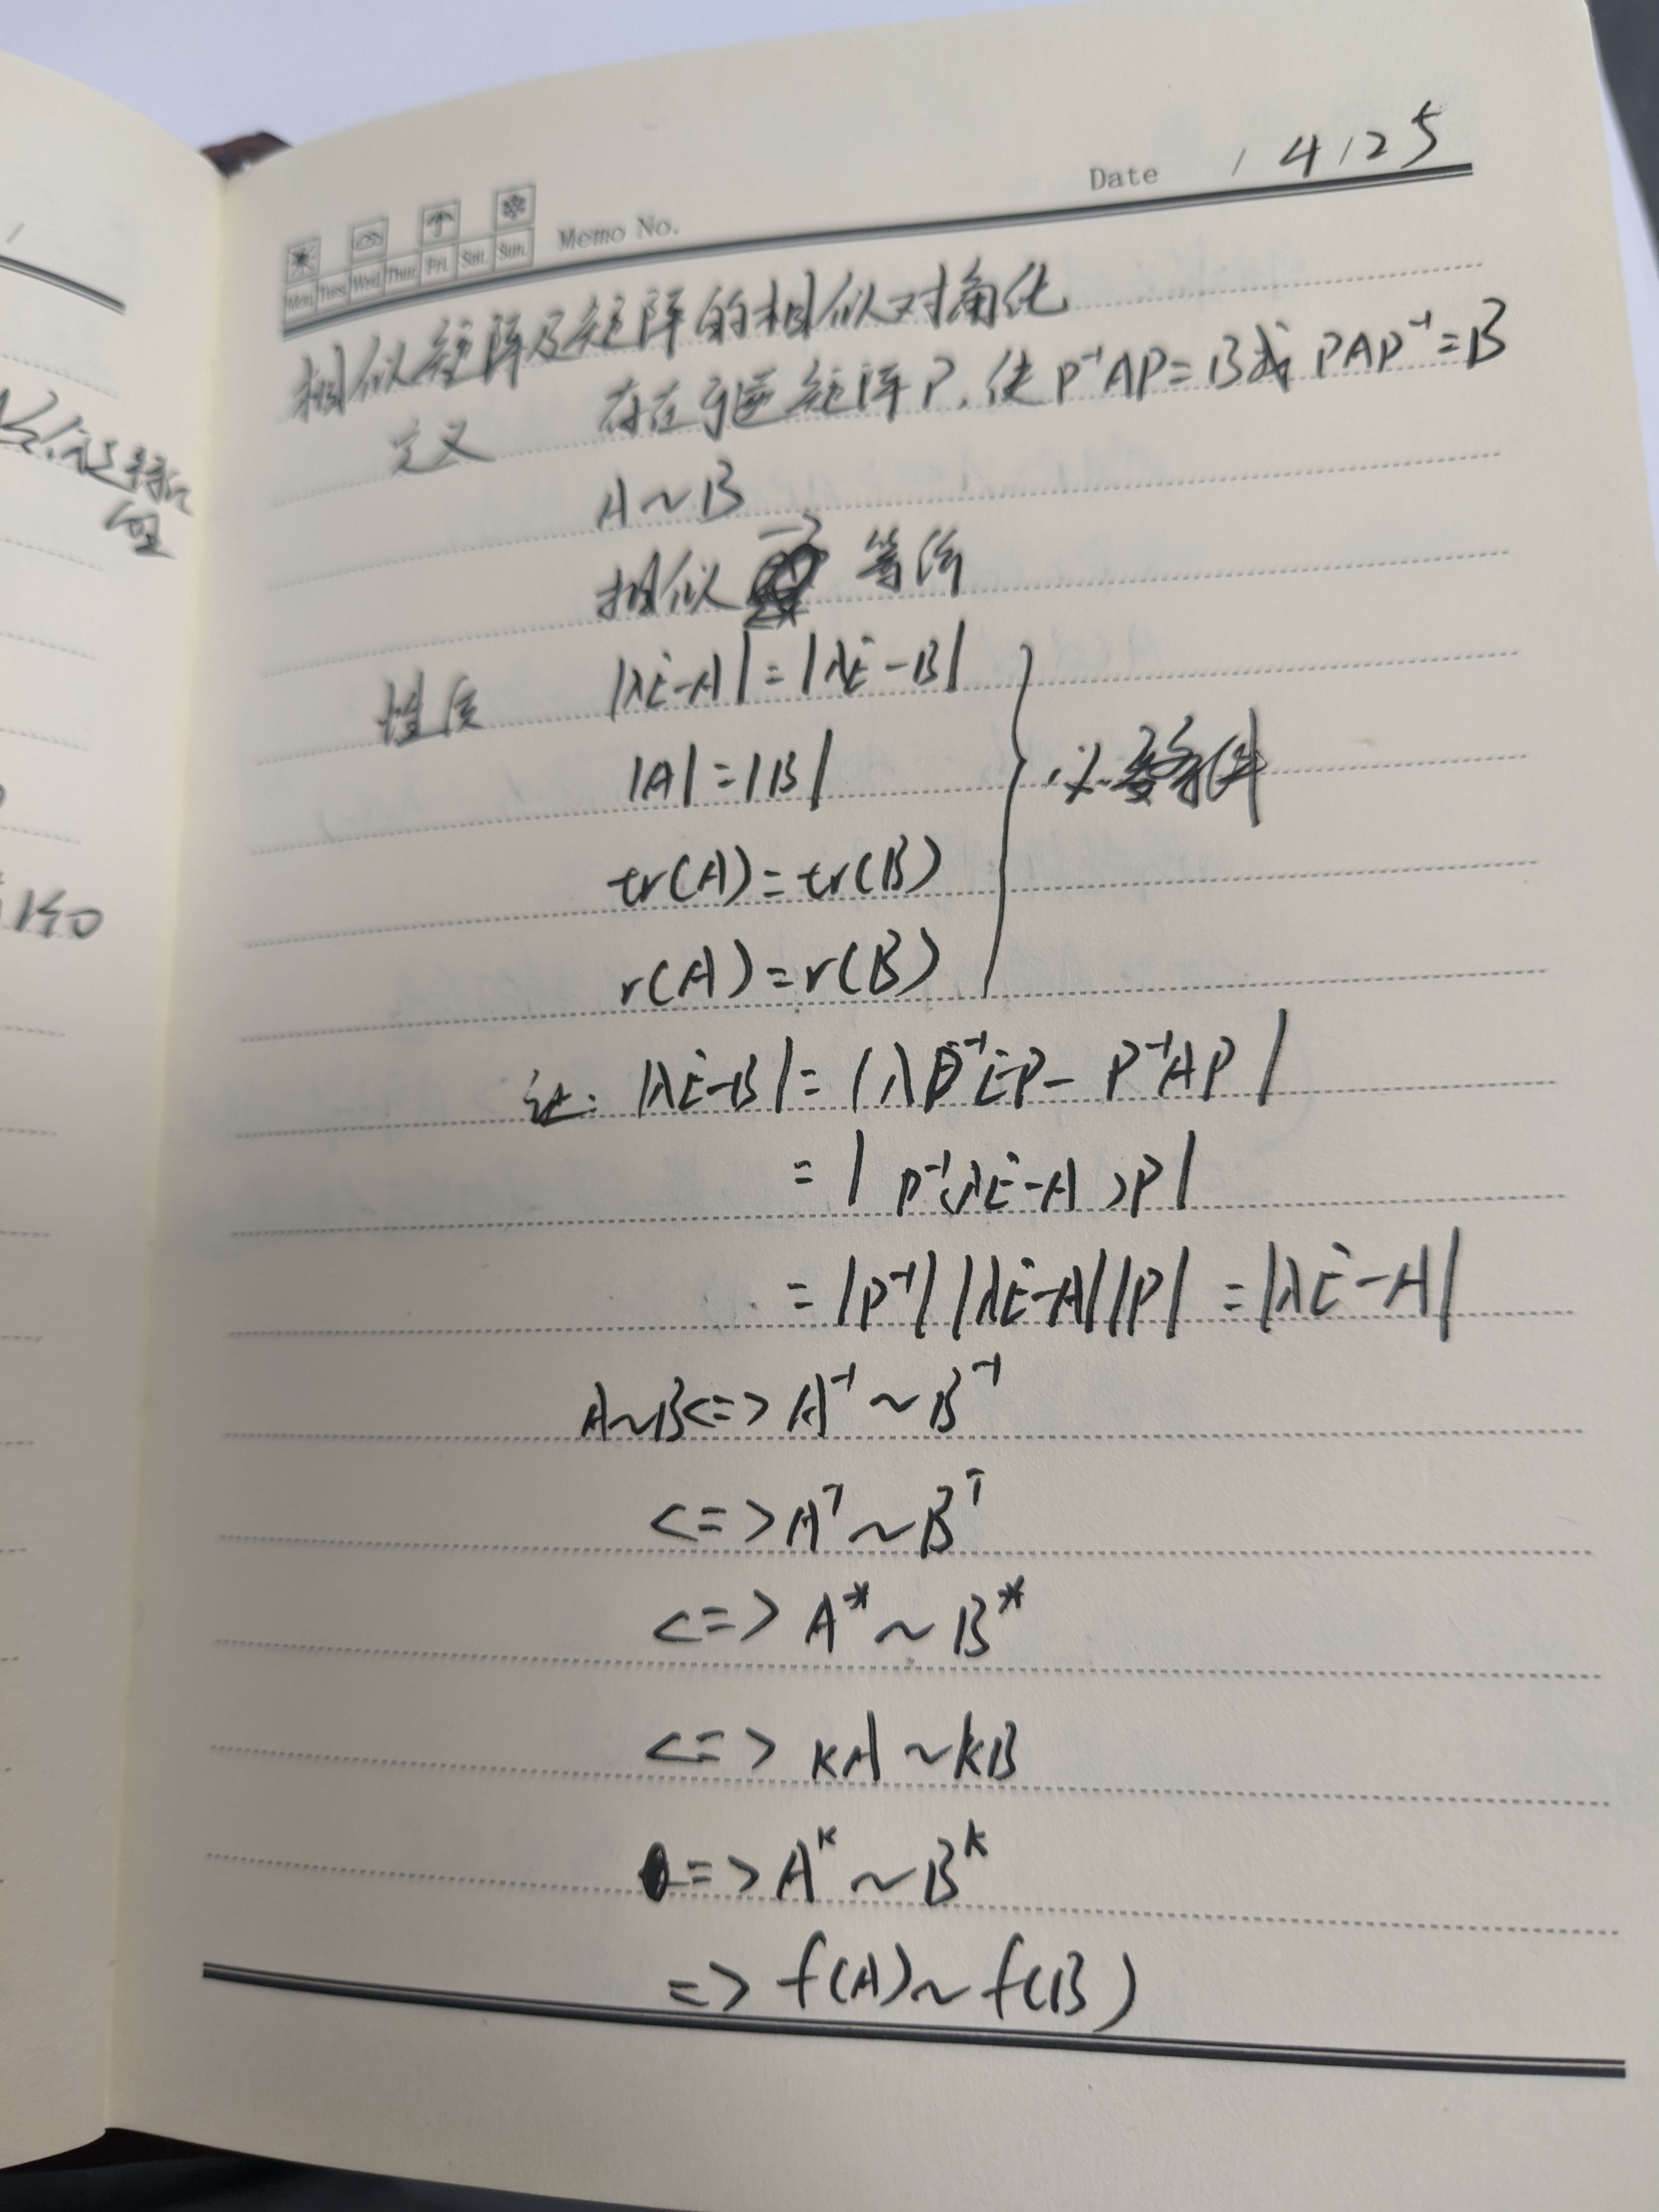 Date / 4 / 25
Memo No.
Mon. Tues. Wed. Thur. Fri. Sat. Sun.
相似矩阵及矩阵的相似对角化
定义 存在可逆矩阵P,使P⁻¹AP=B或PAP⁻¹=B
A~B
相似 → 等价
性质 |λE-A|=|λE-B|
|A|=|B|
必要条件
tr(A)=tr(B)
r(A)=r(B)
证: |λE-B|=|λP⁻¹EP-P⁻¹AP|
=|P⁻¹(λE-A)P|
=|P⁻¹||λE-A||P|=|λE-A|
A~B<=>A⁻¹~B⁻¹
<=>Aᵀ~Bᵀ
<=>A*~B*
<=>kA~kB
=>Aᵏ~Bᵏ
=>f(A)~f(B)